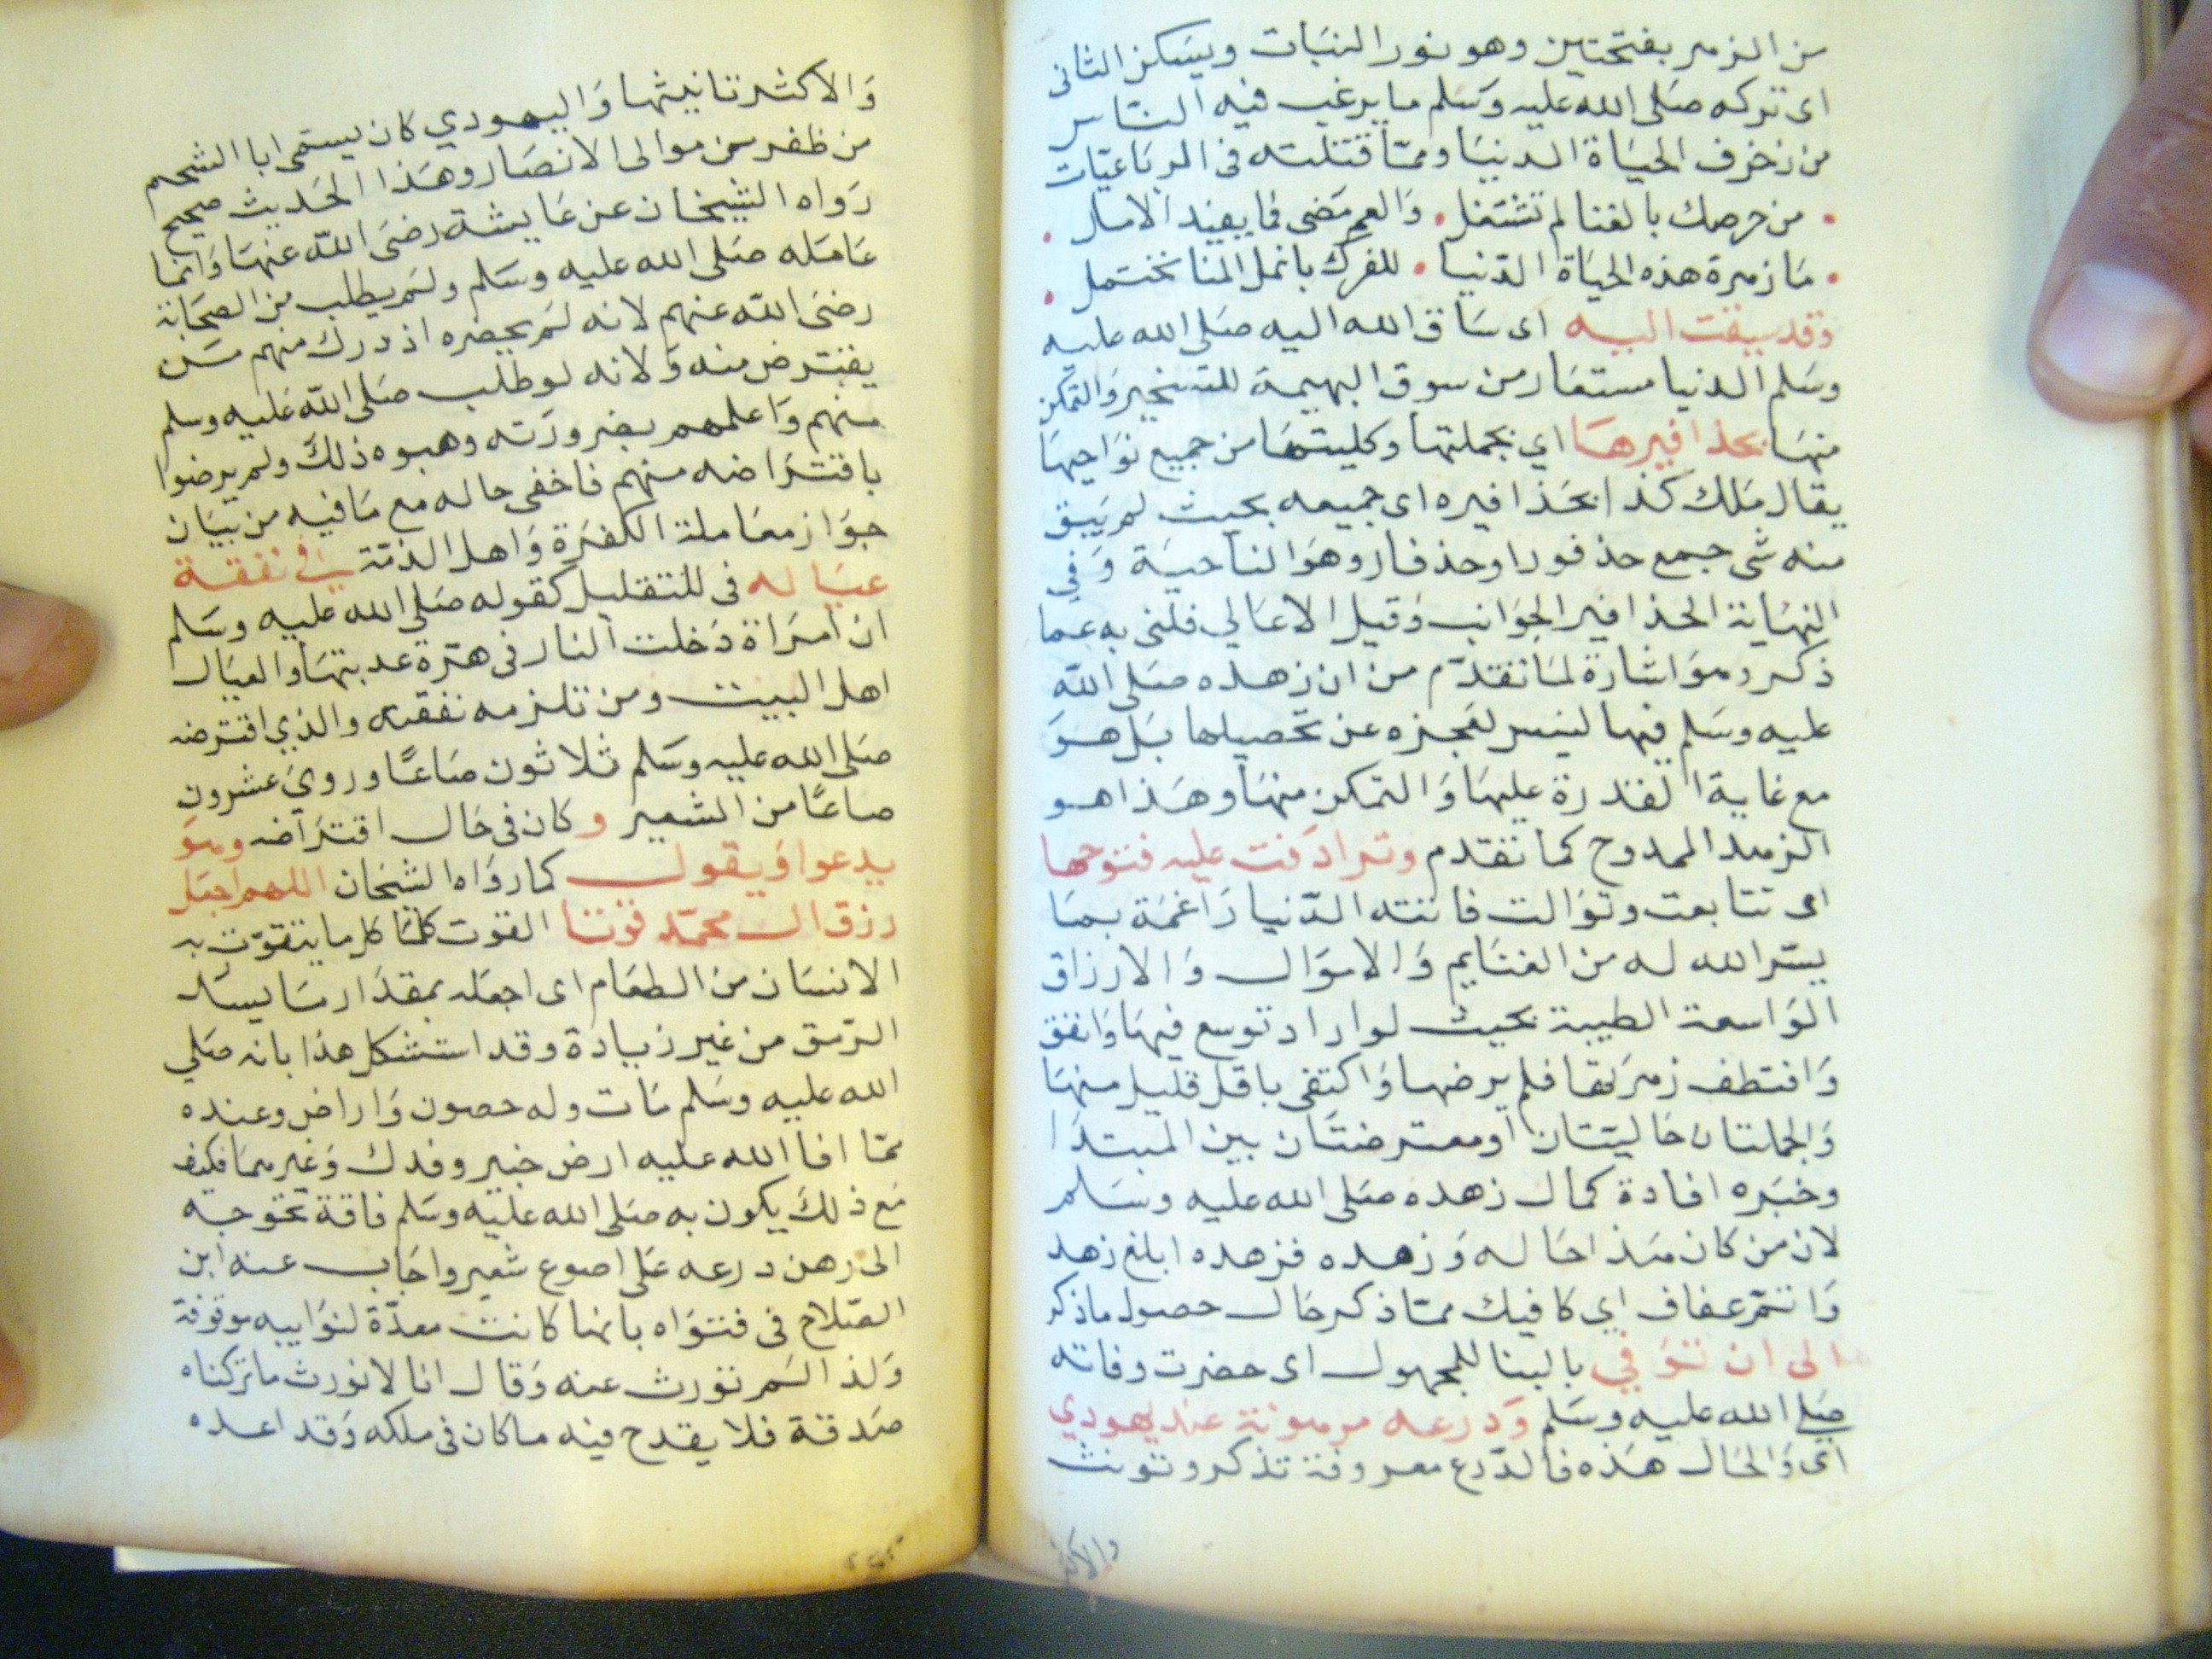 من الزهر بفتحتين وهو نور النبات ويسكن الثانى
اى تركه صَلى الله عليه وَسَلم ما يرغب فيه الناس
من زخرف الحيَاة الدنيَا وممّا قلته فى الربَاعيّات
من حرصك بالفنا لم تشتغل والعمر مَضى فما يفيد الامال
مَا زهرة هذه الحيَاة الدّنيا للفرك بانمل المنا تحتمل
وقد سيقت اليه اى سَاق الله اليه صَلى الله عليه
وسَلم الدنيا مستعَار من سوق البهيمة للتسخير وَالتمكن
منهَا بحذافيرهَا اي بجملتها وكليتهَا من جميع نوَاحيهَا
يقال مَلك كذا بحَذافيره اى جميعه بحيث لم يَبق
منه شى جمع حذفور او حذفار وهوَ الناحيَة وَفي
النهَاية الحذافير الجوَانب وَقيل الاعَالي فلنى به عما
ذكر وهوَ اشارة لمَا تقدّم من ان زهده صَلى الله
عليه وسَلم فيها ليس لعَجزه عن تحصيلها بَل هوَ
مع غاية القدرة عليهَا وَالتمكن منهَا وهَذا هو
الزهد الممدوح كما تقدم وترادَفت عليه فتوحها
اى تتابعت وتوَالت فاتته الدّنيا رَاغمَة بمَا
يسّر الله له من الغنَايم وَالاموَال وَالارزاق
الوَاسعة الطيبة بحيث لو اراد توسع فيهَا وَانفق
وَاقتطف زهرَتها فلم يرضها وَاكتفى باقل قليل منهَا
وَالجملتان حَاليَتان او معترضتَان بين المبتدَا
وخبَره افادة كمال زهده صَلى الله عليه وسَلم
لان من كان هَذا حَاله وَزهده فزهده ابلغ زهد
وَاتمّ عفاف اي كافيك ممّا ذكر حَال حصول ما ذكر
الى ان توَفي بالبنا للمجهول اى حضرت وفاته
صَلى الله عليه وسَلم وَدرعه مرهونة عند يهودي
اى وَالحَال هَذه فالدّرع معروفة تذكر وتونث
والاكثر
وَالاكثر تانيثها وَاليهودي كان يسمّى ابا الشحم
من ظفر من موالى الانصَار وهَذا الحَديث صحيح
رَواه الشيخان عن عَايشة رضىَ الله عنهَا وَانما
عَامَله صَلى الله عليه وسَلم ولم يطلب من الصحَابة
رضىَ الله عنهم لانه لم يحضره اذ ذرك منهم مَن
يقترض منه وَلانه لو طلب صَلى الله عَليه وسلم
منهم وَاعلمهم بضرورَته وهبوه ذلكَ ولم يرضوا
باقترَاضه منهم فاخفى حاله مع مَا فيه من بيَان
جوَاز معَاملة الكفرَة وَاهل الذمّة في نفقة
عيَاله فى للتقليل كقوله صَلى الله عليه وسَلم
ان امرَاة دَخلت النار فى هرّة عدبتهَا وَالعيَال
اهل البيت ومن تلزمه نفقته والذي اقترضه
صَلى الله عليه وسَلم ثلاثون صَاعًا وروىَ عشرون
صاعًا من الشعير وكان فى حَال اقترَاضه وهوَ
يدعوا وَيقول كما روَاه الشيخان اللهم اجعَل
رزق ال محمّد قوتا القوت كلمَا كل ما يتقوّت به
الانسَان من الطعَام اى اجعَله بمقدَار مَا يسد
الرّمق من غير زيادة وقد استشكل هذا بانه صَلي
الله عليه وسَلم مَات وله حصون وَاراض وعنده
ممّا افا الله عليه ارض خيبر وفدك وَغيرهمَا فكيف
مَع ذلكَ يكون به صَلى الله عليه وسَلم فاقة تحوجه
الى رهن درعه عَلى اصوع شعير واجَاب عنه ابن
الصّلاح فى فتوَاه بانها كانت معدّة لنوَايبه موقوفة
وَلذا لسَم تورث عنه وَقال انا لا نورث ما تركناه
صَدقة فلا يقدح فيه ما كان فى ملكه وَقد اعده